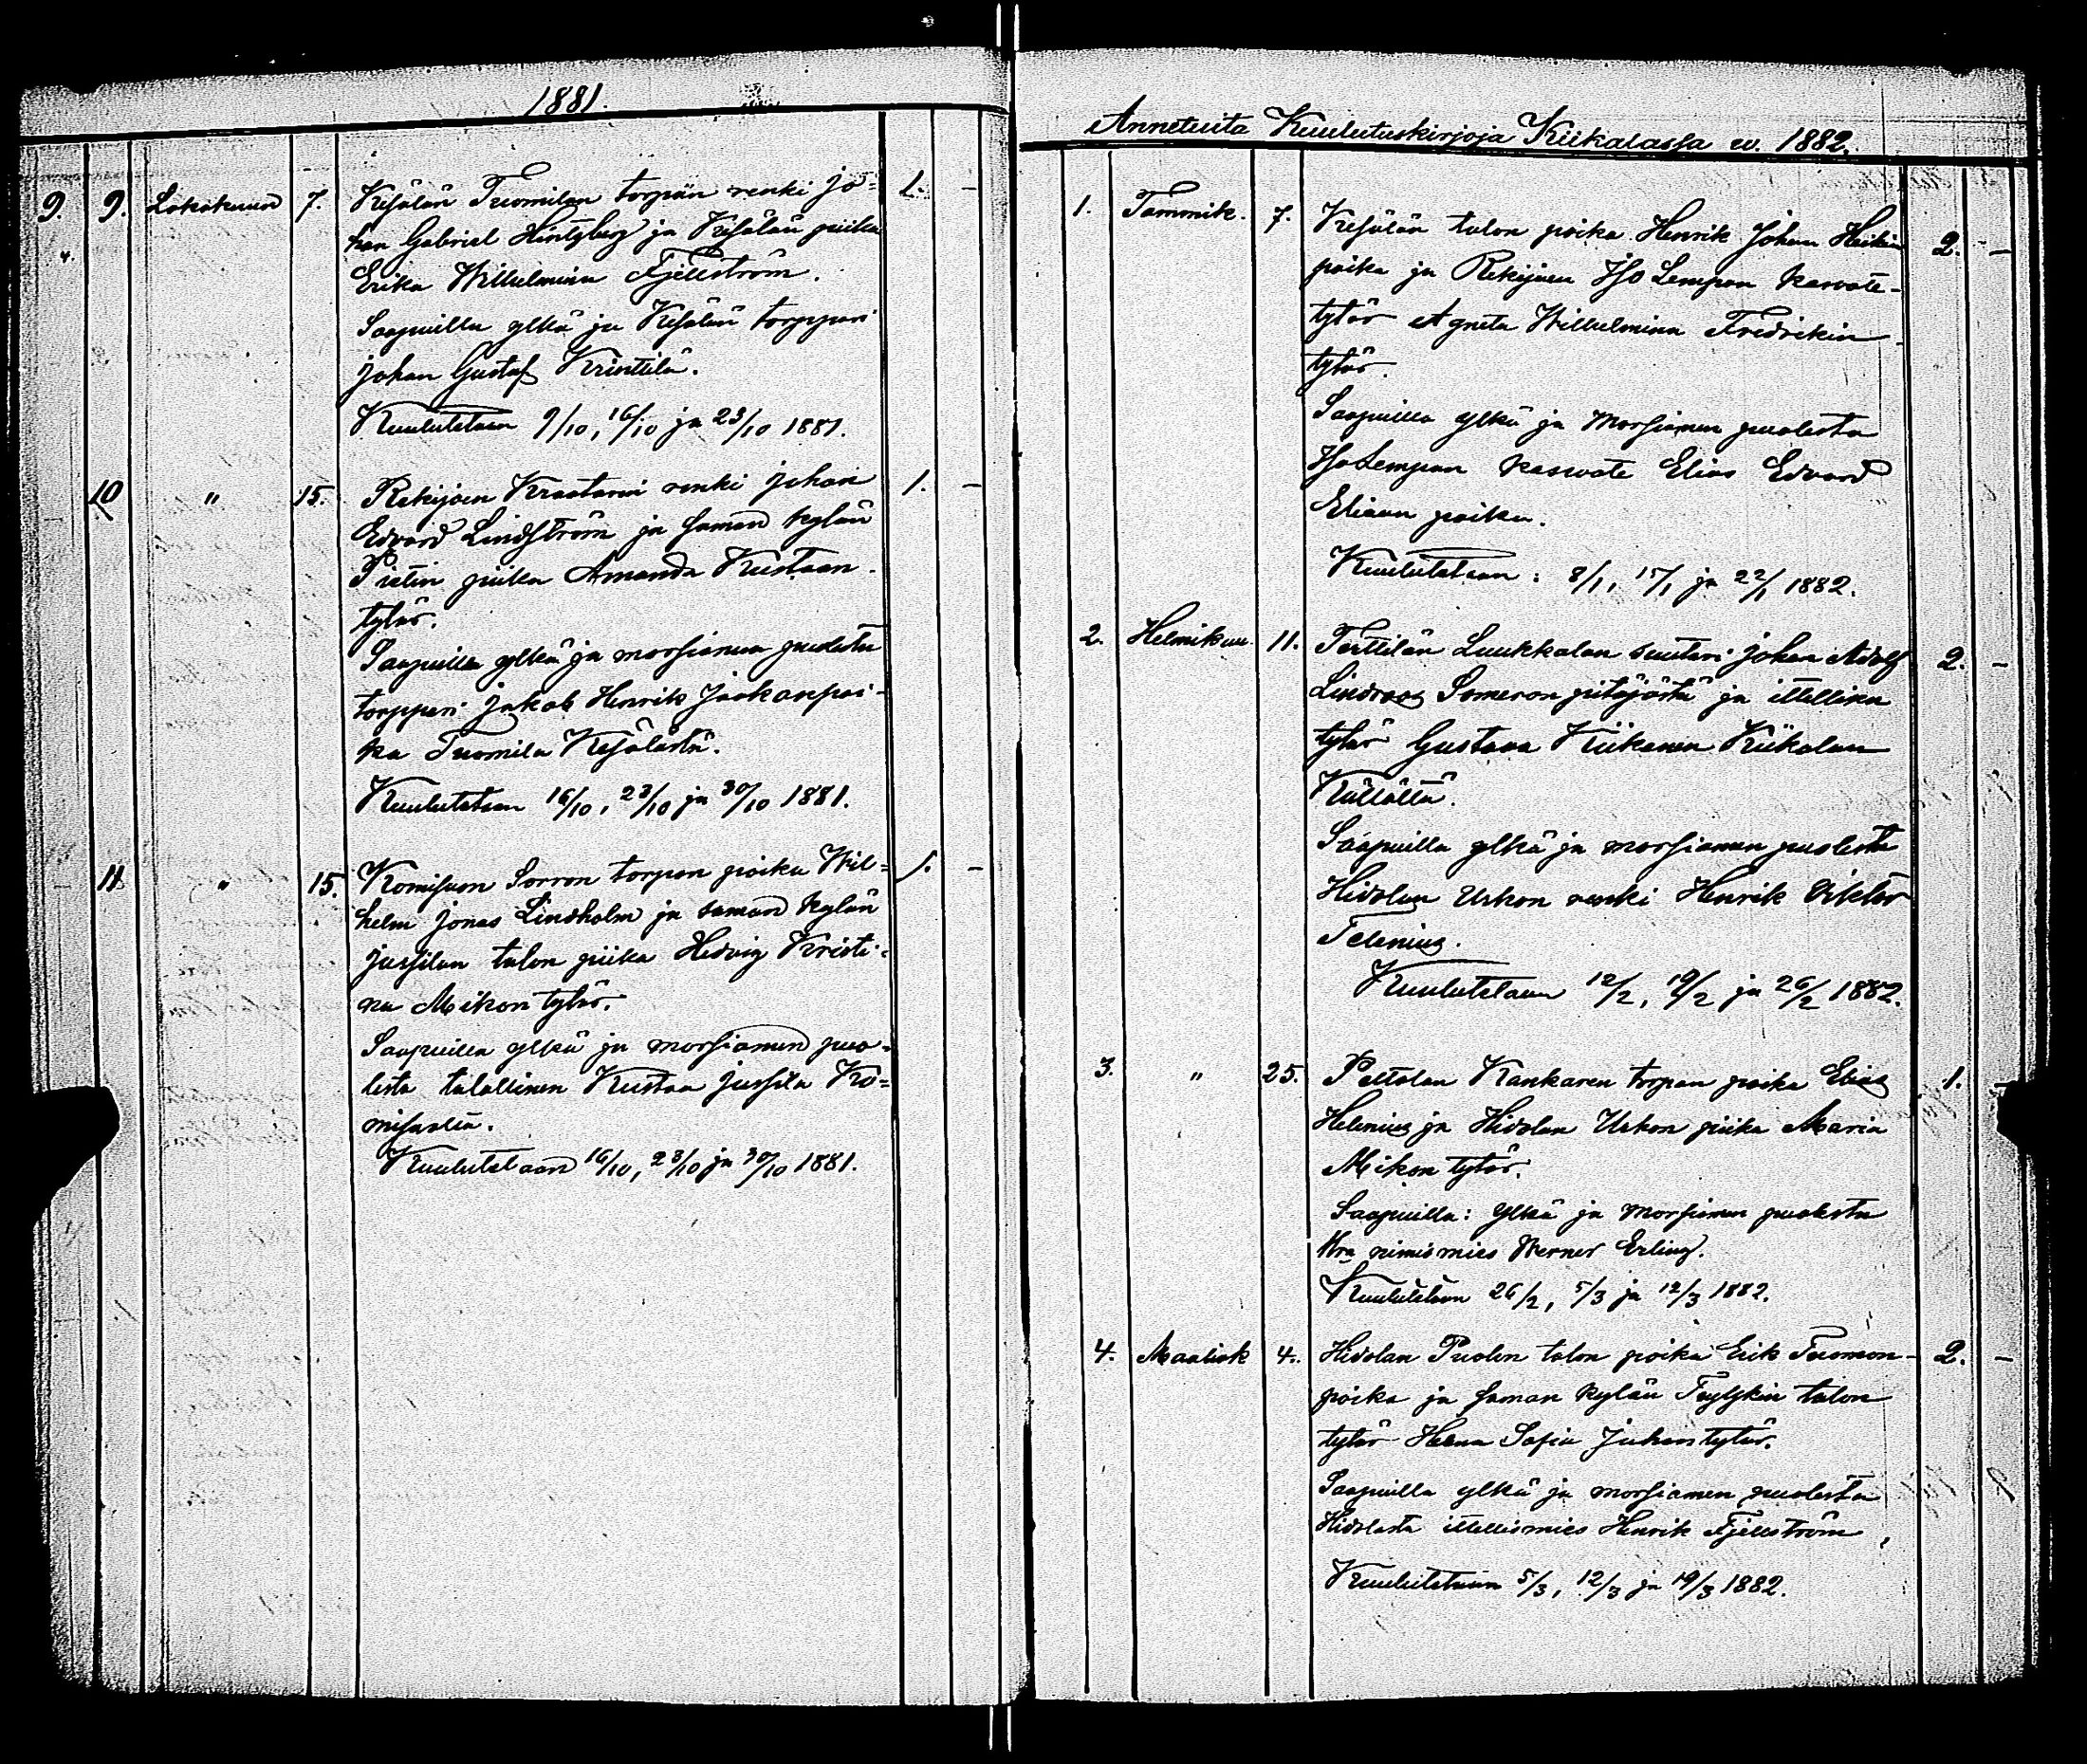 1881.
9. 9. Lokakuun 7. Kesälän Tuomilan torpan renki Jo= 1. -
han Gabriel Hintzberg ja Kesälän piika
Erika Wilhelmina Fjellström.
Saapuilla ylkä ja Kesälän torppari
Johan Gustaf Krinttilä.
Kuulutetaan 9/10, 16/10 ja 23/10 1881.
10 " 15. Rekijoen Kraatarin renki Johan 1. -
Edvard Lindström ja saman kylän
Pietin piika Amanda Kustaan
tytär.
Saapuilla ylkä ja morsiamen puolesta
torppari Jakob Henrik Jaakonpoi-
ka Tuomila Kesälästä.
Kuulutetaan 16/10, 23/10 ja 30/10 1881.
11 " 15. Komisuon Sorron torpan poika Wil= 1. -
helm Jonas Lindholm ja saman kylän
Jussilan talon piika Hedvig Kristi-
na Mikon tytär.
Saapuilla ylkä ja morsiamen puo-
lesta talollinen Kustaa Jussila Ko=
misuolta.
Kuulutetaan 16/10, 23/10 ja 30/10 1881.
Annetuita Kuulutuskirjoja Kiikalassa w. 1882.
1. Tammik. 7. Kesälän talon poika Henrik Johan Heikin 2. -
poika ja Rekijoen Iso Lempan kasvate-
tytär Agneta Wilhelmina Fredrikin
tytär.
Saapuilla ylkä ja morsiamen puolesta
Iso Lempan kasvate Elias Edvard
Eliaan poika.
Kuulutetaan: 8/1, 15/1 ja 22/1 1882.
2. Helmikuu. 11. Terttilän Luukkalan suutari Johan Adolf 2. -
Lindroos Someron pitäjästä ja itellisen
tytär Gustava Kiikanen Kiikalan
Saapuilla ylkä ja morsiamen puolesta
Hidolan Uskon renki Henrik Viktor
Telenius.
Kuulutetaan 12/2, 19/2 ja 26/2 1882.
3. " 25. Peltolan Kankaren torpan poika Elias 1. -
Helenius ja Hidolan Uskon piika Maria
Mikon tytär.
Saapuilla: ylkä ja morsiamen puolesta
Hra nimismies Werner Erling.
Kuulutetaan 26/2, 5/3 ja 12/3 1882.
4. Maalisk 4. Hidolan Puolin talon poika Erik Tuomon- 2. -
poika ja saman kylän talon
tytär Helena Sofia Juhantytär.
Saapuilla ylkä ja morsiamen puolesta
Hidolasta itellismies Henrik Fjellström,
Kuulutetaan 5/3, 12/3 ja 19/3 1882.